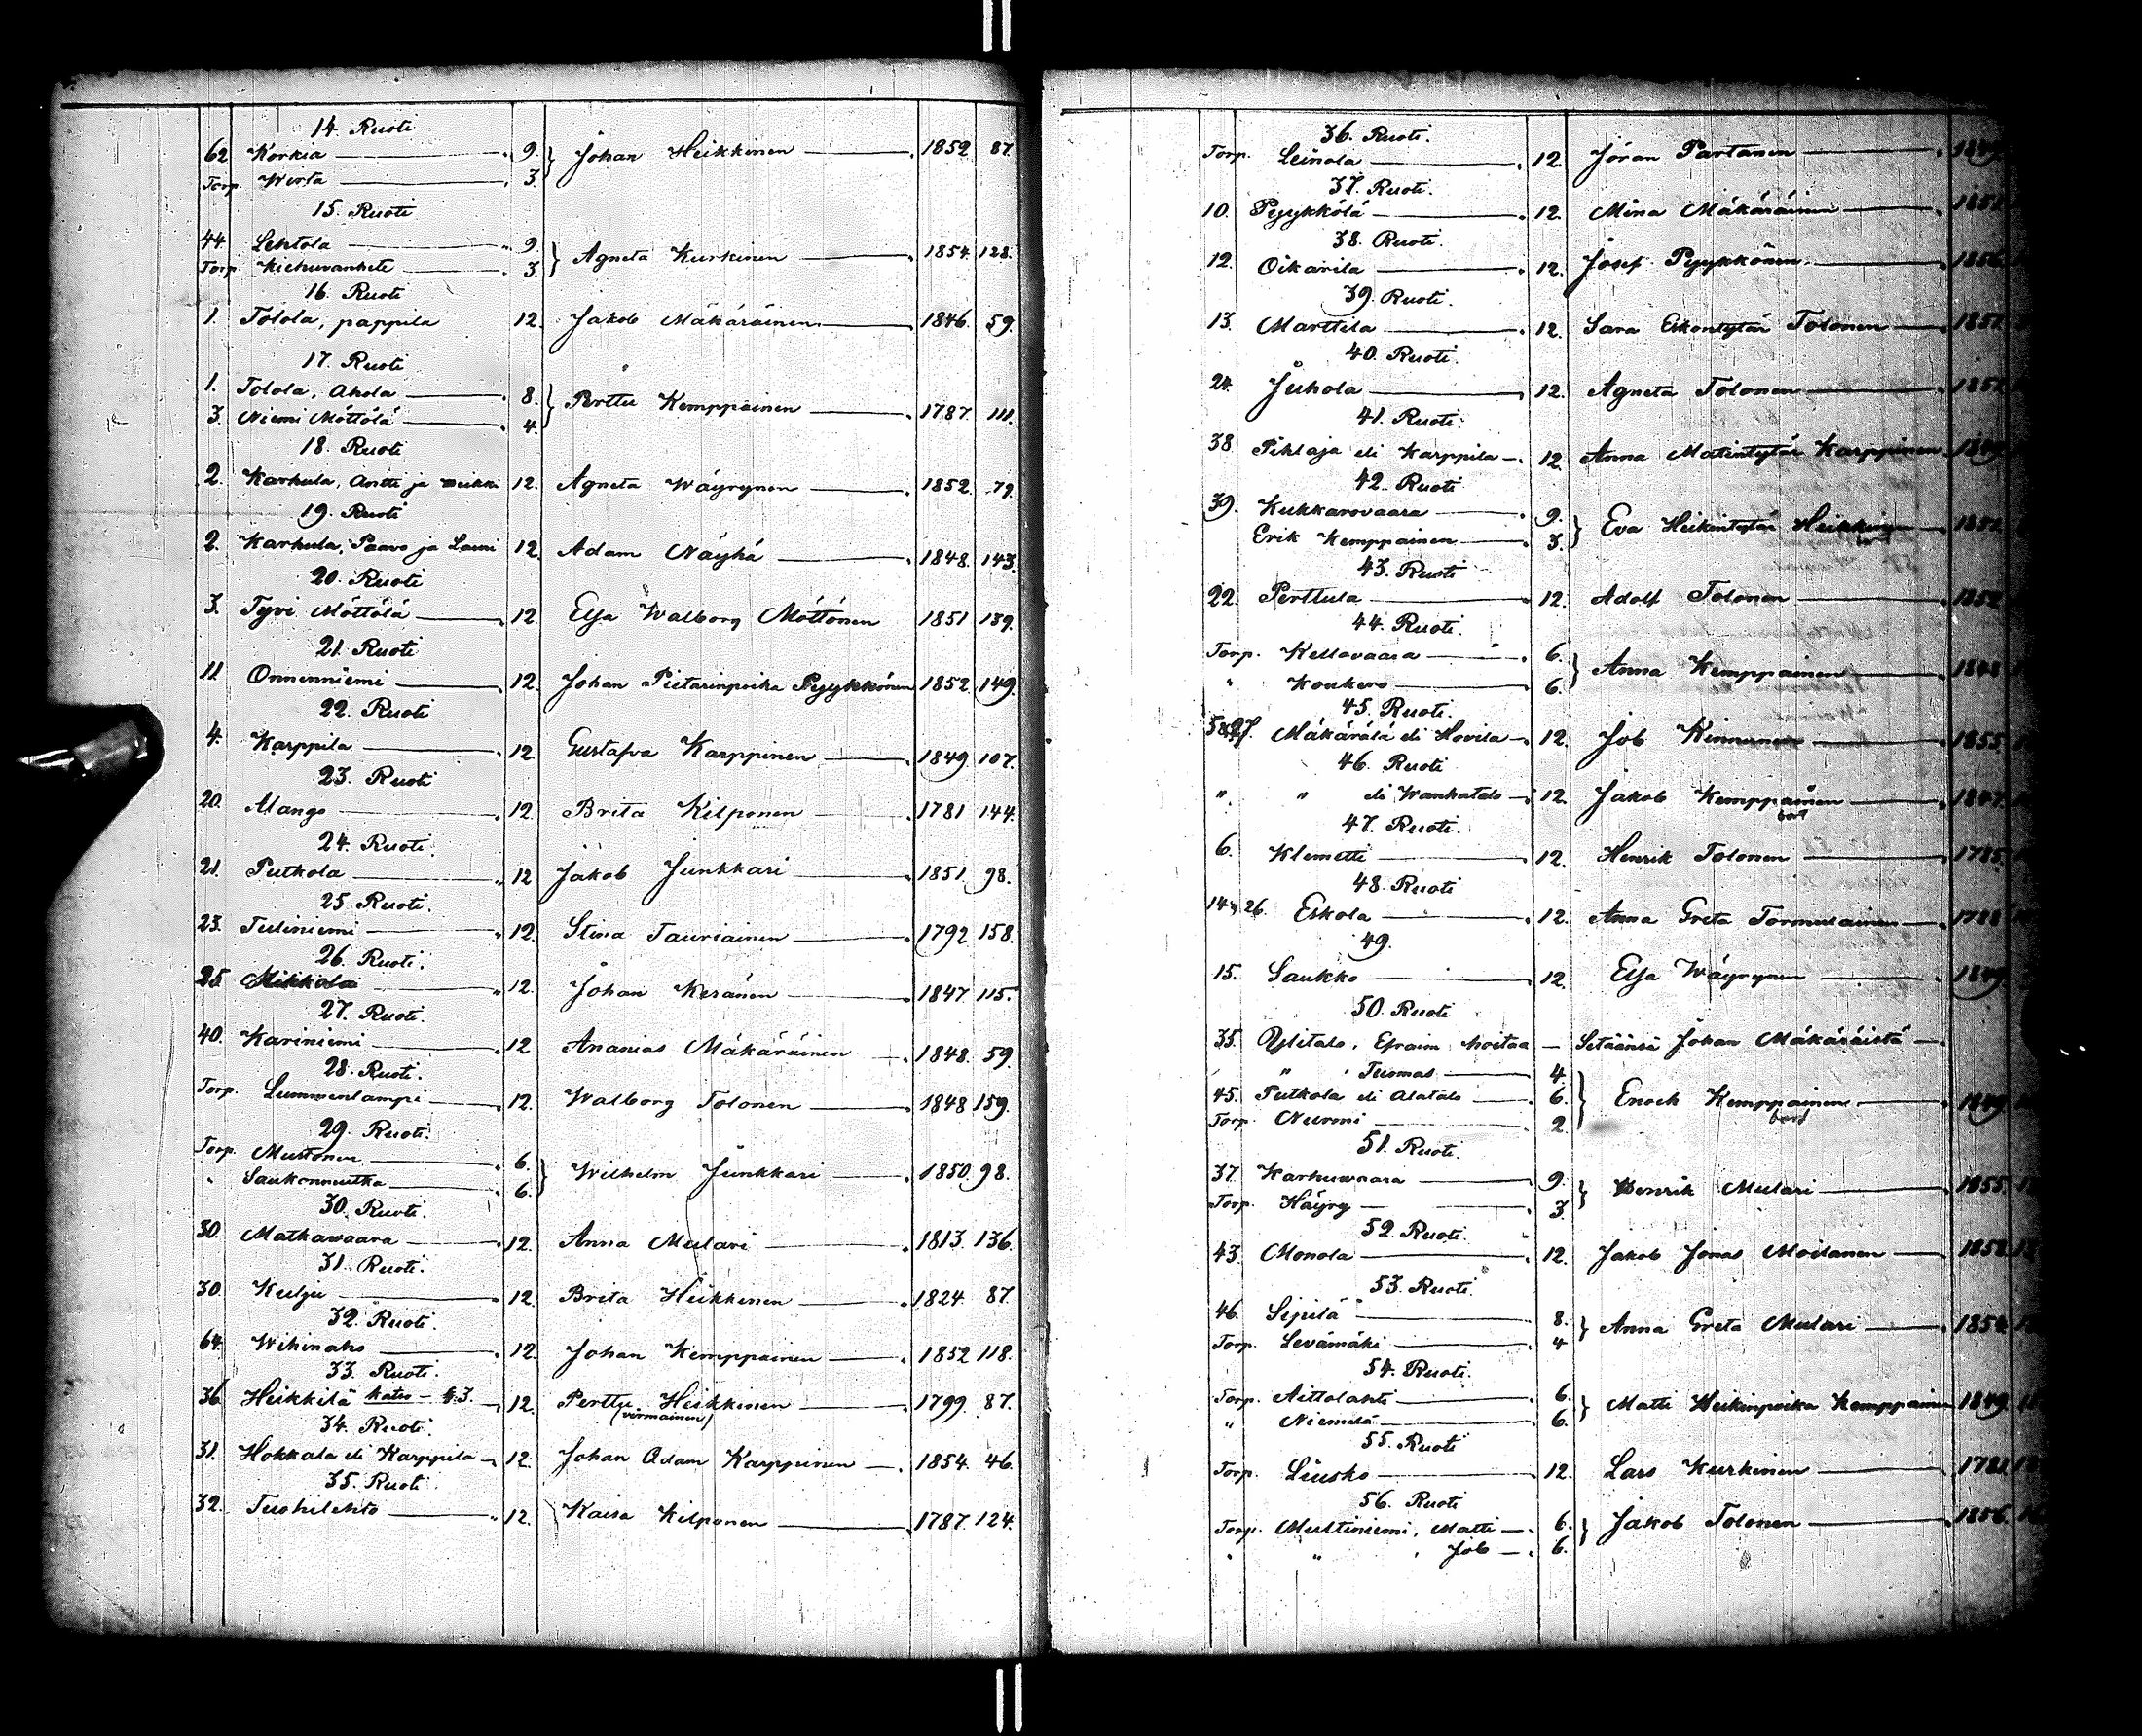 14. Ruoti
62 Korkia 9. } Johan Heikkinen 1852 87.
Torp. Wirta 3.
15. Ruoti
44. Lehtola 9. } Agneta Kurkinen 1854. 128.
Torp. Kiehuvanlehti 3.
16. Ruoti
1. Tolola, pappila 12. Jakob Mäkäräinen 1846. 59.
17. Ruoti
1. Tolola, Ahola 8. } Perttu Kemppainen 1787. 111.
3. Niemi Möttölä 4.
18. Ruoti
2. Karhula, Antti ja Heikki 12. Agneta Wäyrynen 1852. 79.
19. Ruoti
2. Karhula, Paavo ja Lauri 12. Adam Näyhä 1848. 143.
20. Ruoti
3. Tyvi Möttölä 12 Elsa Walborg Möttönen 1851 139.
21. Ruoti
11 Onnenniemi 12. Johan Pietarinpoika Pyykkönen 1852. 149.
22. Ruoti
4. Karppila 12. Gustafva Karppinen 1849. 107.
23. Ruoti
20. Alango 12. Brita Kilponen 1781 144.
24. Ruoti.
21. Putkola 12 Jakob Junkkari 1851. 98.
25. Ruoti.
23. Tuliniemi 12. Stina Tauriainen 1792 158.
26. Ruoti.
25. Mikkola 12. Johan Keränen 1847 115.
27. Ruoti.
40. Kariniemi 12 Ananias Mäkäräinen 1848. 59.
28. Ruoti.
Torp. Lummenlampi 12. Walborg Tolonen 1848 159.
29. Ruoti.
Torp. Mustonen 6. } Wilhelm Junkkari 1850. 98.
" Saukonmutka 6.
30. Ruoti.
30. Matkavaara 12. Anna Mulari 1813. 136.
31. Ruoti.
30. Kulju 12. Brita Heikkinen 1824. 87.
32. Ruoti.
64. Wihinaho 12. Johan Kemppainen 1852 118.
33. Ruoti.
36. Heikkilä katso 12. Perttu Heikkinen 1799. 87.
34. Ruoti.
31. Hokkala eli Karppila 12. Johan Adam Karppinen 1854. 46.
35. Ruoti.
32. Tuohilehto 12. Kaisa Kilponen 1787. 124.
36. Ruoti.
Torp. Leinola 12. Jöran Partanen
37. Ruoti.
10. Pyykkölä 12. Mina Mäkäräinen
38. Ruoti.
12. Oikarila 12. Josef Pyykkönen
39. Ruoti.
13. Marttila 12. Sara Eskontytär Tolonen
40. Ruoti.
24. Juhola 12. Agneta Tolonen
41. Ruoti.
38 Pihlaja eli Karppila 12. Anna Matintytär Karppinen
42. Ruoti
39. Kukkarovaara 9. } Eva Heikintytär Heikkinen
Erik Kemppainen 3.
43. Ruoti
22. Perttula 12. Adolf Tolonen 1852
44. Ruoti.
Torp. Kellovaara 6. } Anna Kemppainen 1848
" Koukero 6.
45. Ruoti.
Mäkärälä eli Hovila 12. Job Kinnunen 1855.
46. Ruoti
" " eli Wanhatalo 12. Jakob Kemppainen 1847.
47. Ruoti.
6. Klemetti 12. Henrik Tolonen 1785.
48. Ruoti
14 y 26. Eskola 12. Anna Greta Tormulainen 1788
49.
15. Saukko 12. Elsa Wäyrynen 1849
50. Ruoti
35. Ylitalo, Efraim hoitaa — Setäänsä Johan Mäkäräistä
" Tuomas 4. } Enoch Kemppainen 1849
45. Putkola eli Alatalo 6.
Torp. Nurmi 2.
51. Ruoti.
37. Karhuvaara 9. } Henrik Mulari 1855.
Torp. Häyry 3.
52. Ruoti.
43. Monola 12. Jakob Jonas Moilanen 1852.
53. Ruoti.
46. Sipilä 8. } Anna Greta Mulari 1854.
Torp. Levämäki 4
54. Ruoti.
Torp. Aittolahti 6. } Matti Heikinpoika Kemppainen 1849.
" Niemelä 6.
55. Ruoti
Torp. Liusko 12. Lars Kurkinen
56. Ruoti
Torp. Multiniemi, Matti 6. } Jakob Tolonen 1856.
" " Job 6.